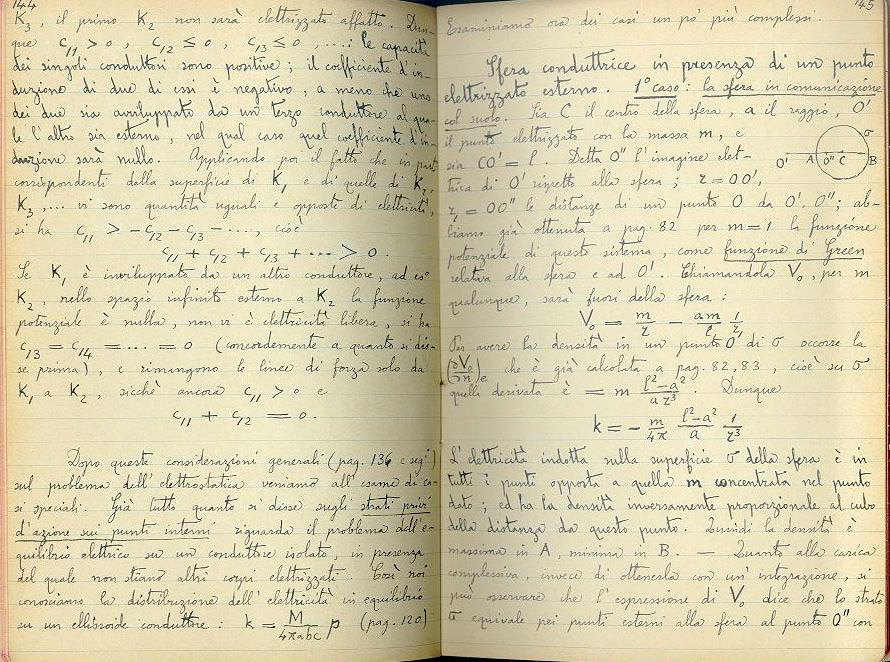 144
K₃, il primo K₂ non sarà elettrizzato affatto. Dun-
que c₁₁ > 0, c₁₂ ≤ 0, c₁₃ ≤ 0, ....: le capacità
dei singoli conduttori sono positive; il coefficiente d'in-
duzione di due di essi è negativo, a meno che uno
dei due sia avviluppato da un terzo conduttore al qua-
le l'altro sia esterno, nel qual caso quel coefficiente d'in-
duzione sarà nullo. Applicando poi il fatto che in parti
corrispondenti della superficie di K₁ e di quelle di K₂,
K₃,... vi sono quantità uguali e opposte di elettricità,
si ha c₁₁ > -c₁₂ -c₁₃ - ...., cioè
c₁₁ + c₁₂ + c₁₃ + ... > 0.
Se K₁ è inviluppato da un altro conduttore, ad es°
K₂, nello spazio infinito esterno a K₂ la funzione
potenziale è nulla, non vi è elettricità libera, si ha
c₁₃ = c₁₄ = .... = 0 (concordemente a quanto si dis-
se prima), e rimangono le linee di forza solo da
K₁ a K₂, sicchè ancora c₁₁ > 0 e
c₁₁ + c₁₂ = 0.
Dopo queste considerazioni generali (pag. 136 e seg.ⁱ)
sul problema dell'elettrostatica veniamo all'esame di ca-
si speciali. Già tutto quanto si disse sugli strati privi
d'azione sui punti interni riguarda il problema dell'e-
quilibrio elettrico su un conduttore isolato, in presenza
del quale non stiano altri corpi elettrizzati. Così noi
conosciamo la distribuzione dell'elettricità in equilibrio
su un ellissoide conduttore: k = M/4πabc p (pag. 120)
145
Esaminiamo ora dei casi un po' più complessi.
Sfera conduttrice in presenza di un punto
elettrizzato esterno. 1° caso: la sfera in comunicazione
col suolo. Sia C il centro della sfera, a il raggio, O'
il punto elettrizzato con la massa m, e
sia CO' = l. Detta O'' l'imagine elet-
trica di O' rispetto alla sfera; r = OO',
r₁ = OO'' le distanze di un punto O da O', O''; ab-
biamo già ottenuta a pag. 82 per m=1 la funzione
potenziale di questo sistema, come funzione di Green
relativa alla sfera e ad O'. Chiamandola V₀, per m
qualunque, sarà fuori della sfera:
V₀ = m/r - am/l 1/r₁
Per avere la densità in un punto O di σ occorre la
(∂V₀/∂n)e che è già calcolata a pag. 82,83, cioè su σ
quella derivata è = m (l²-a²)/(ar³). Dunque
k = - m/4π (l²-a²)/a 1/r³
L'elettricità indotta sulla superficie σ della sfera è in
tutti i punti opposta a quella m concentrata nel punto
dato; ed ha la densità inversamente proporzionale al cubo
della distanza da questo punto. Quindi la densità è
massima in A, minima in B. — Quanto alla carica
complessiva, invece di ottenerla con un'integrazione, si
può osservare che l'espressione di V₀ dice che lo strato
σ equivale pei punti esterni alla sfera al punto O'' con
O' A O'' C B σ